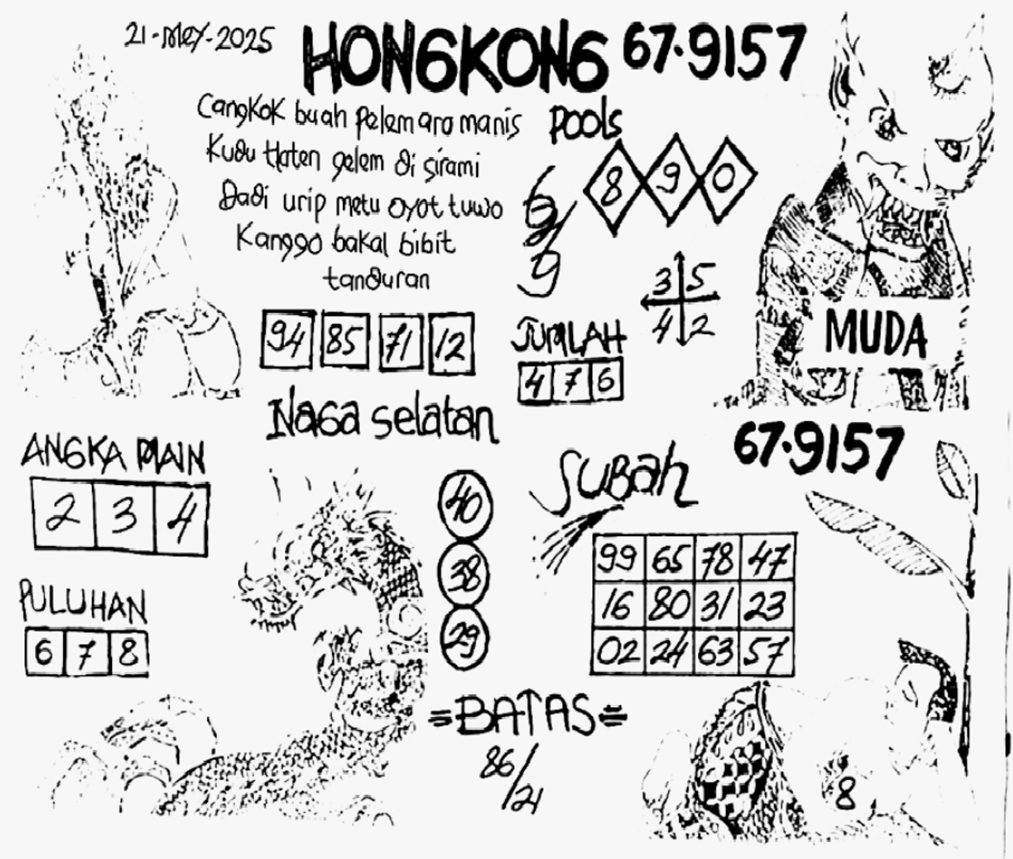 21-MEY-2025 HONGKONG 67.9157
Pools
Cangkok buah Pelem aro manis
Kudu Haten gelem di sirami
Dadi urip metu oyot tuwo
Kanggo bakal bibit
tanduran
8 9 0
3 5
4 2
MUDA
94 85 71 12
JUMLAH
4 7 6
Naga selatan
67.9157
ANGKA MAIN
2 3 4
40
38
29
SUBAH
99 65 78 47
16 80 31 23
02 24 63 57
PULUHAN
6 7 8
=BATAS=
86/21
8